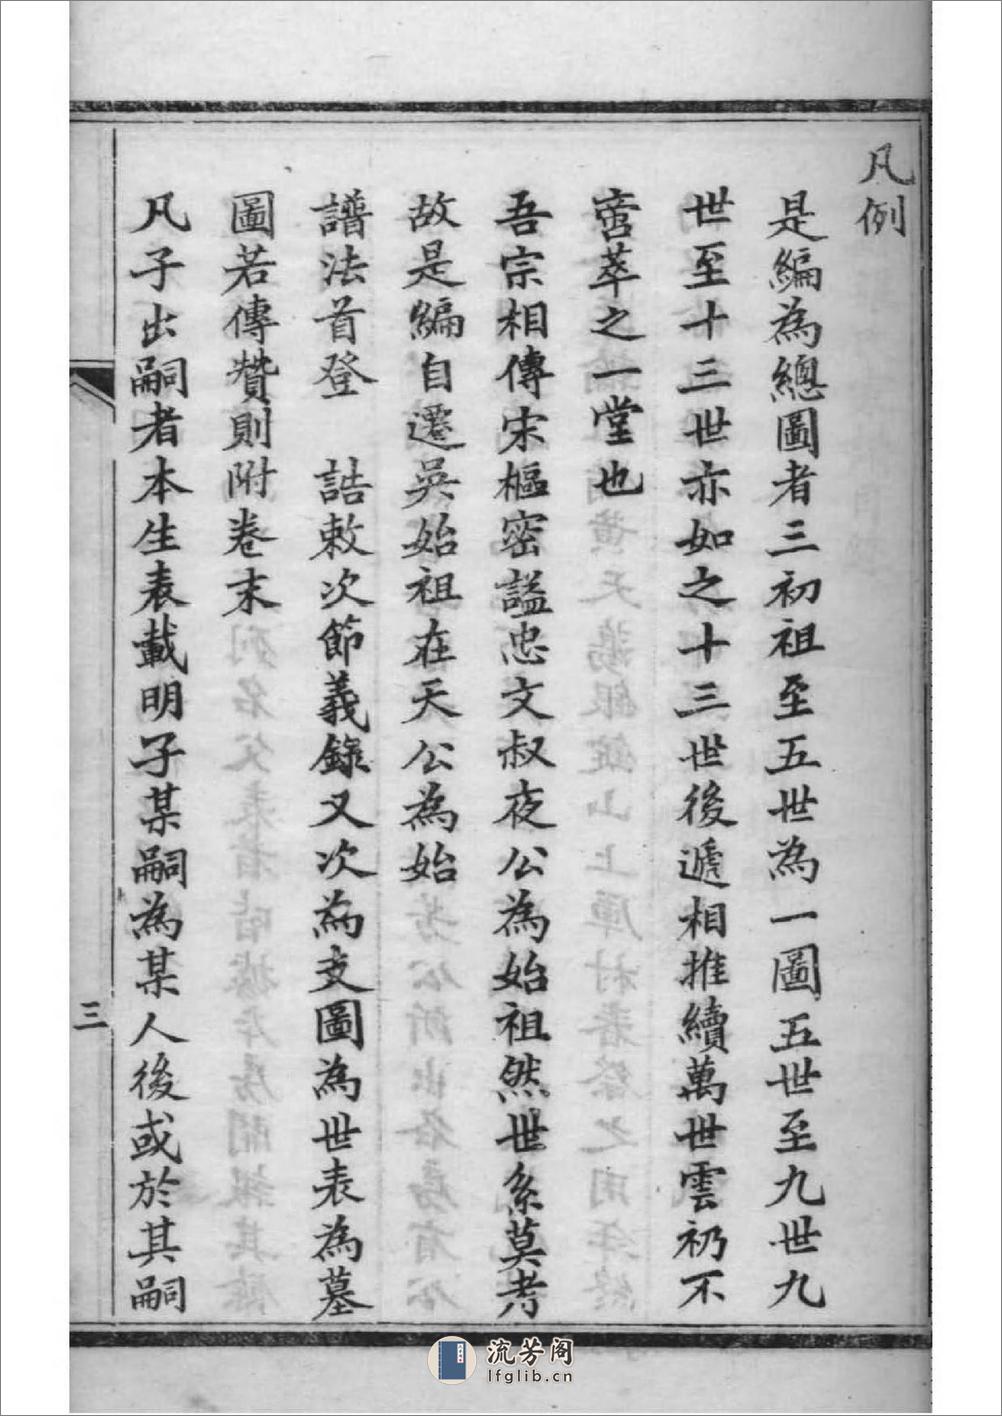 凡例
是編為總圖者三初祖至五世為一圖五世至九世九
世至十三世亦如之十三世後遞相推續萬世雲礽不
啻萃之一堂也
吾宗相傳宋樞密謚忠文叔夜公為始祖然世系莫考
故是編自遷吳始祖在天公為始
譜法首登 誥敕次節義錄又次為支圖為世表為墓
圖若傳贊則附卷末
凡子出嗣者本生表載明子某嗣為某人後或於其嗣
三
流芳阁
lfglib.cn